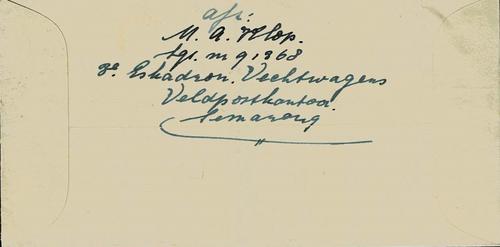 afz:
M. A. Klop.
sgt. m 91368
3e Eskadron. Vechtwagens
Veldpostkantoor.
Semarang